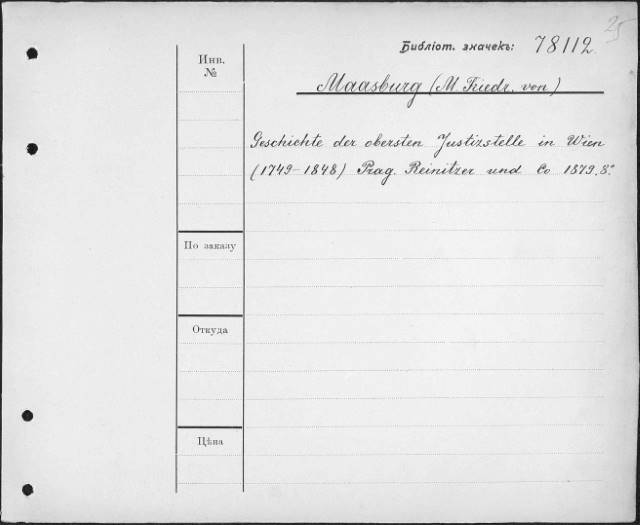 25
Библіот. значекъ: 78112
Инв.
№
Maasburg (M. Friedr. von)
Geschichte der obersten Justizstelle in Wien
(1749-1848) Prag. Reinitzer und Co 1879. 8°
По заказу
Откуда
Цѣна